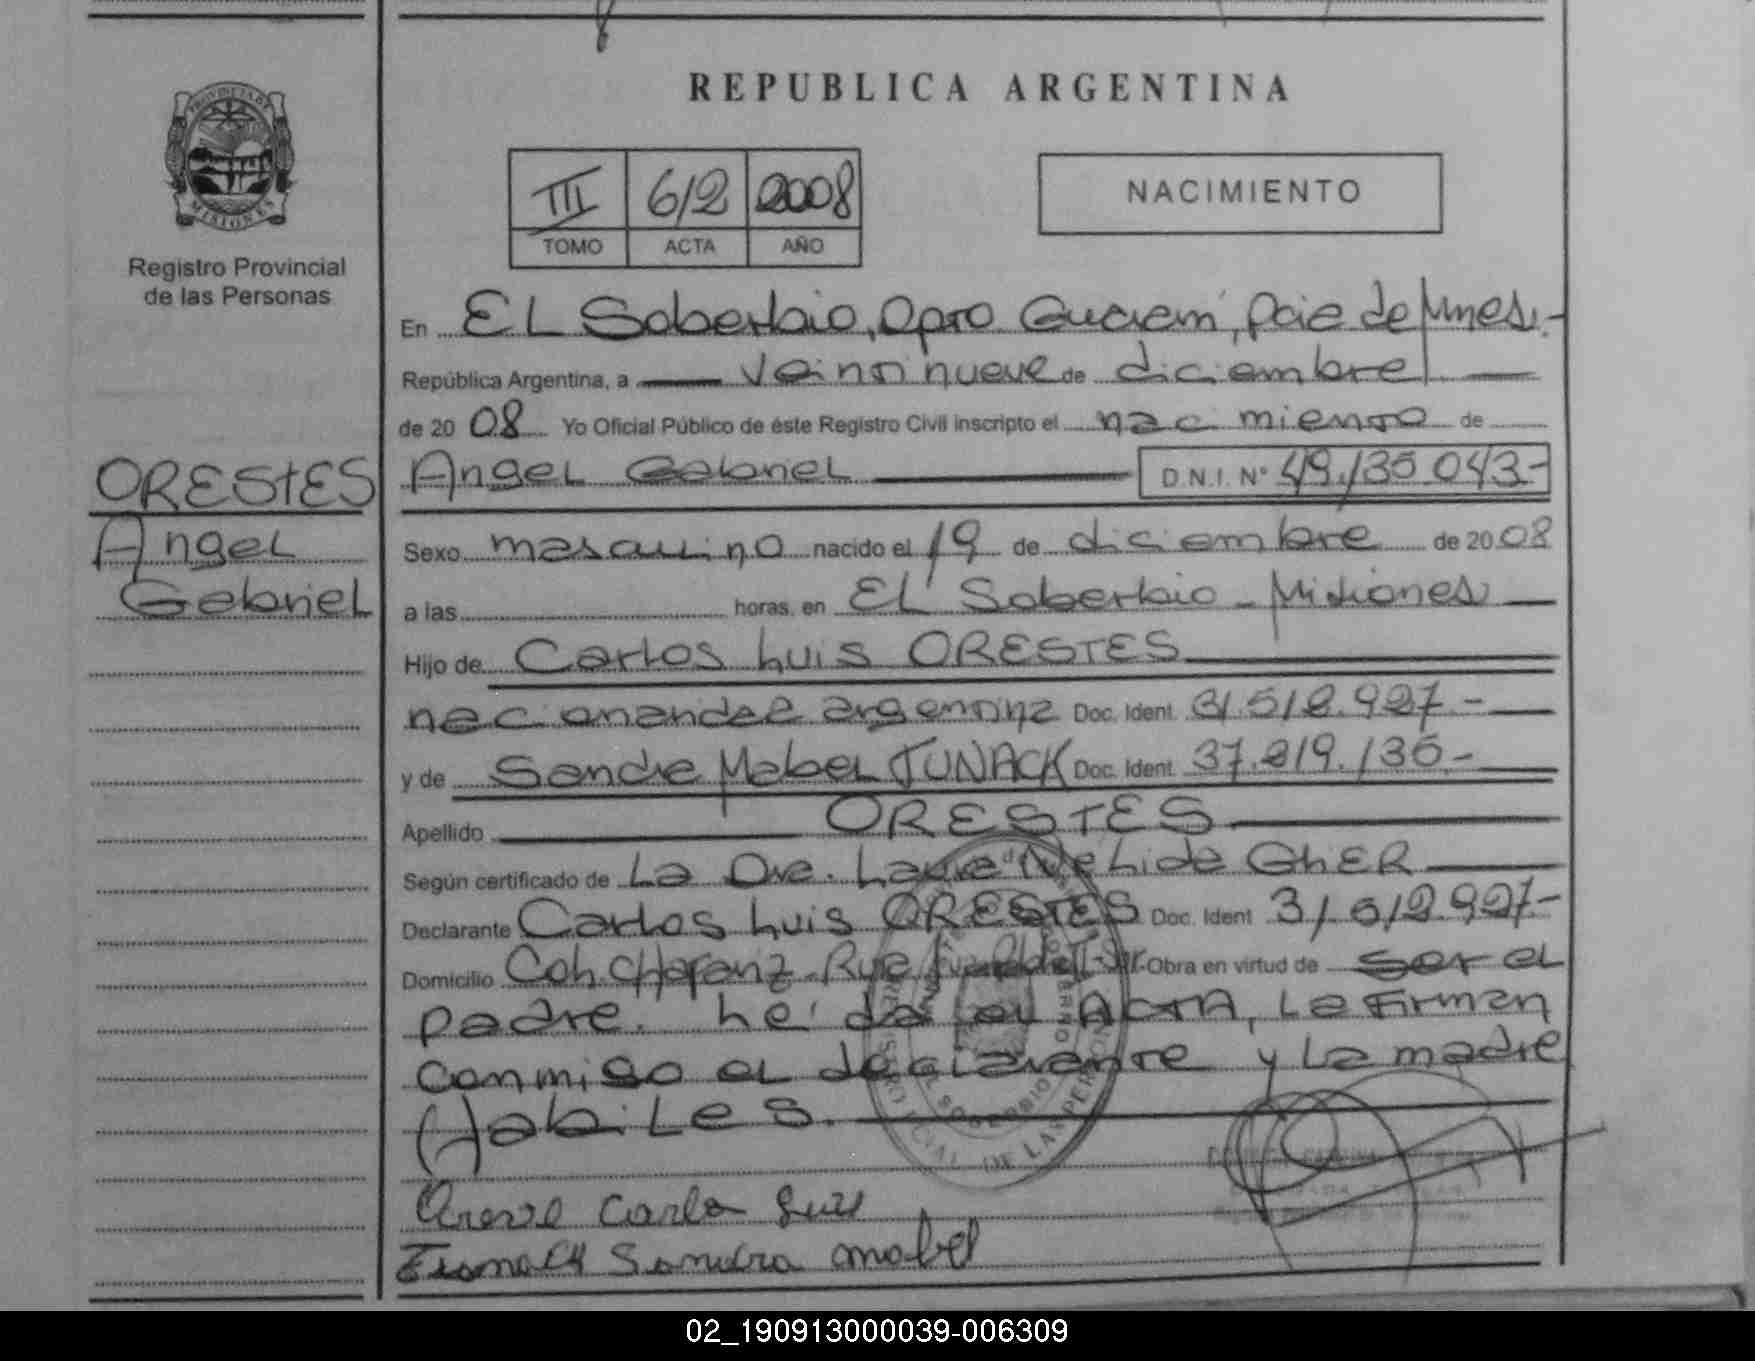 REPUBLICA ARGENTINA
PROVINCIA DE
MISIONES
Registro Provincial
de las Personas
III 612 2008
TOMO ACTA AÑO
NACIMIENTO
En EL Soberbio, Dpto Guarani, Pcia de Mnes.-
República Argentina, a veintinueve de diciembre
de 20 08 Yo Oficial Público de éste Registro Civil inscripto el nacimiento de
ORESTES
Angel
Gabriel
Angel Gabriel D.N.I. N° 49.135.043-
Sexo masculino nacido el 19 de diciembre de 20 08
a las horas, en EL Soberbio - Misiones
Hijo de Carlos Luis ORESTES
nacionalidad argentina Doc. Ident. 31.512.927-
y de Sandra Mabel JUNACK Doc. Ident. 37.219.135-
Apellido ORESTES
Según certificado de La Dra. Laura Nelida GhER
Declarante Carlos Luis ORESTES Doc. Ident 31.512.927-
Domicilio Col. Chafariz Obra en virtud de ser el
padre. Leída el ACTA, La Firman
conmigo el declarante y La madre
Habiles.
Carlos Luis
Sandra mabel
02_190913000039-006309